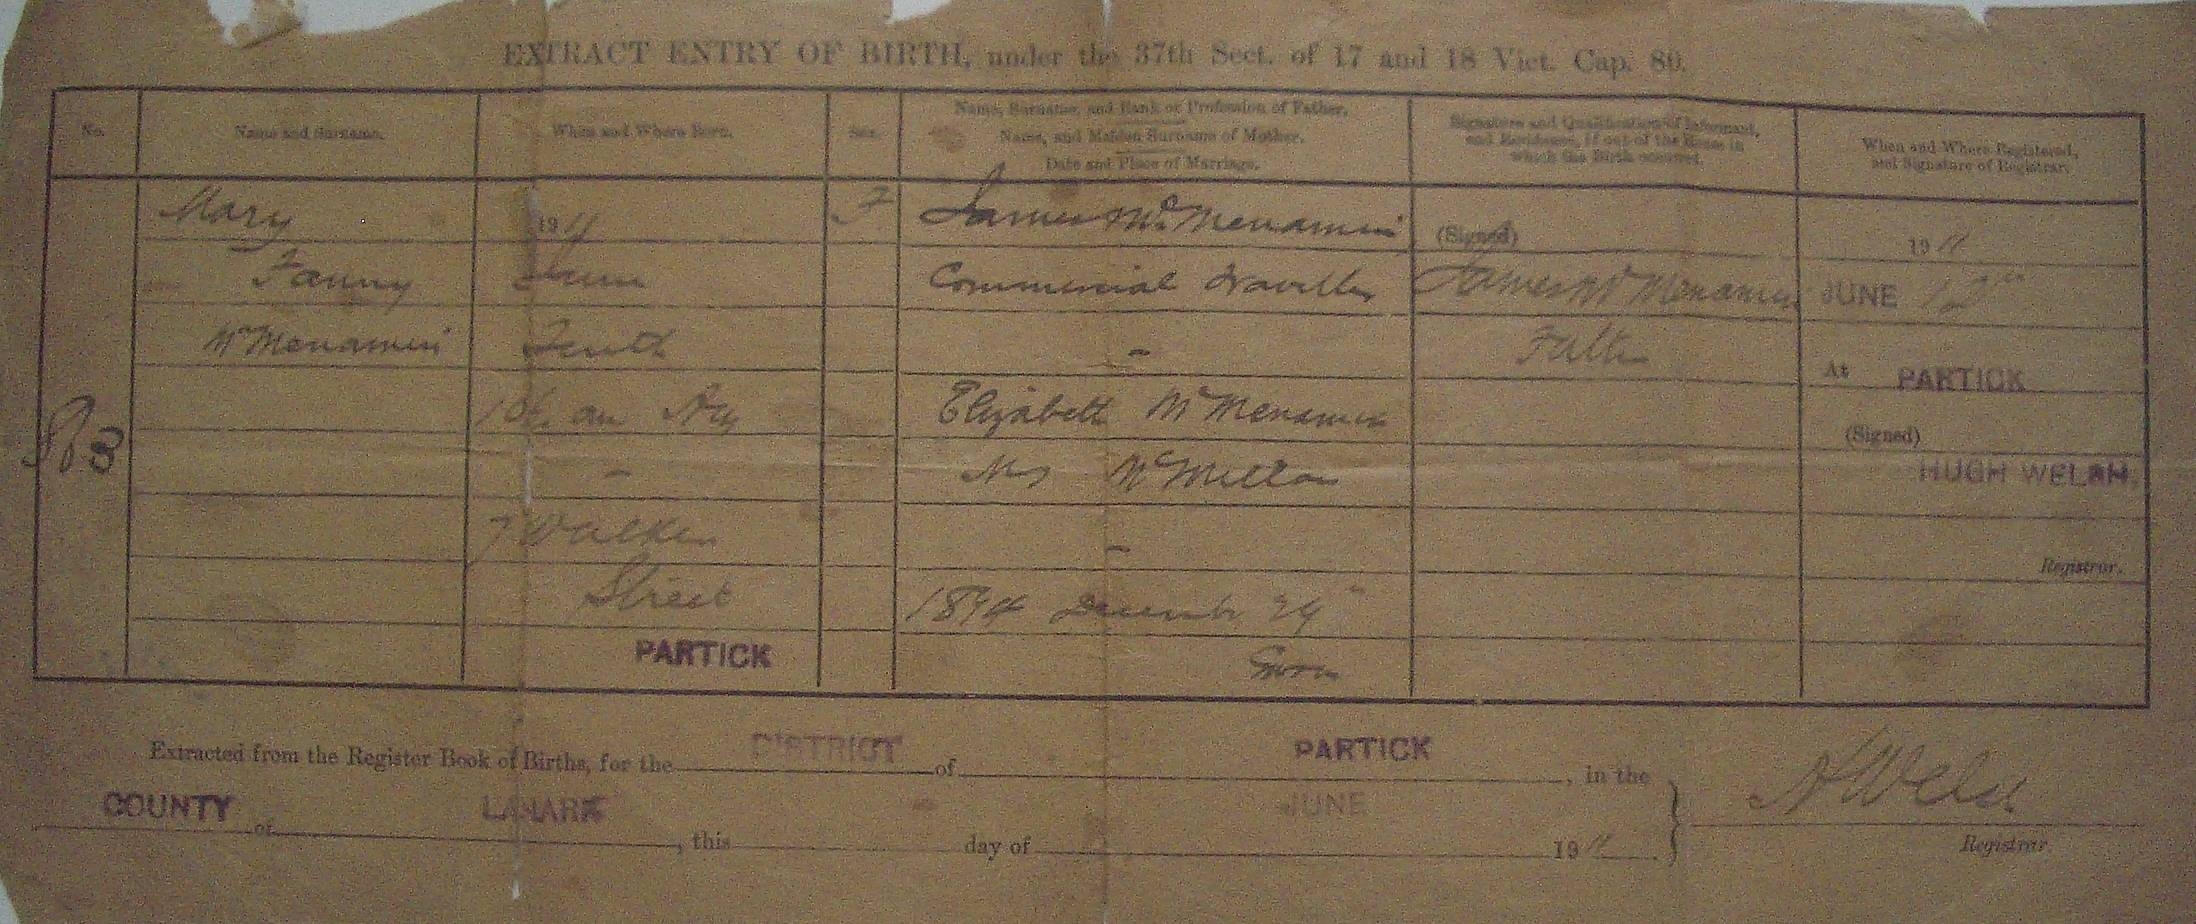 EXTRACT ENTRY OF BIRTH, under the 37th Sect. of 17 and 18 Vict. Cap. 80.
No.
Name and Surname.
When and Where Born.
Sex.
Name, Surname, and Rank or Profession of Father.
Name, and Maiden Surname of Mother.
Date and Place of Marriage.
Signature and Qualification of Informant,
and Residence, if out of the House in
which the Birth occurred.
When and Where Registered,
and Signature of Registrar.
Mary
Fanny
McMenamin
1911
June
Tenth
7 Walker
Street
PARTICK
F
James McMenamin
Commercial Traveller
-
Elizabeth McMenamin
M.S McMillan
-
December 24"
(Signed)
James McMenamin
Father
1911
JUNE 12th
At PARTICK
(Signed)
HUGH WELSH.
Registrar.
Extracted from the Register Book of Births, for the DISTRICT of PARTICK, in the
COUNTY of LANARK, this day of JUNE 1911.
H Welsh
Registrar.